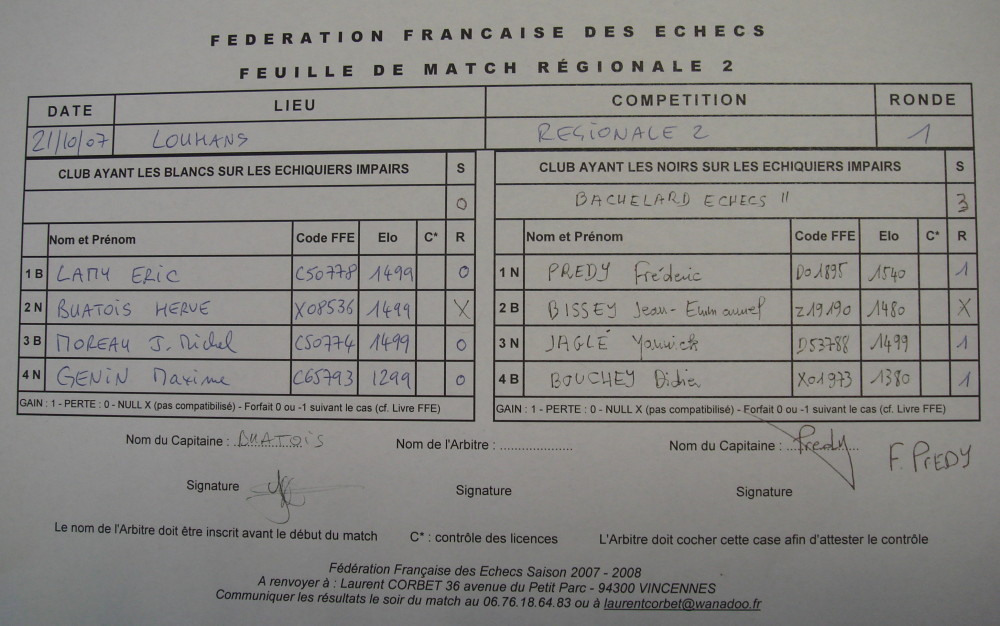 FEDERATION FRANCAISE DES ECHECS
FEUILLE DE MATCH RÉGIONALE 2
DATE LIEU COMPETITION RONDE
21/10/07 LOUHANS REGIONALE 2 1
CLUB AYANT LES BLANCS SUR LES ECHIQUIERS IMPAIRS S CLUB AYANT LES NOIRS SUR LES ECHIQUIERS IMPAIRS S
0 BACHELARD ECHECS II 3
Nom et Prénom Code FFE Elo C* R Nom et Prénom Code FFE Elo C* R
1 B LAMY ERIC C50778 1499 0 1 N PREDY Fréderic D01895 1540 1
2 N BUATOIS HERVE X08536 1499 X 2 B BISSEY Jean-Emmanuel Z19190 1480 X
3 B MOREAU J. Michel C50774 1499 0 3 N JAGLÉ Yannick D53788 1499 1
4 N GENIN Maxime C65793 1299 0 4 B BOUCHEY Didier X01973 1380 1
GAIN : 1 - PERTE : 0 - NULL X (pas compatibilisé) - Forfait 0 ou -1 suivant le cas (cf. Livre FFE) GAIN : 1 - PERTE : 0 - NULL X (pas compatibilisé) - Forfait 0 ou -1 suivant le cas (cf. Livre FFE)
Nom du Capitaine : BUATOIS Nom de l'Arbitre : .................... Nom du Capitaine : Predy F. PREDY
Signature Signature Signature
Le nom de l'Arbitre doit être inscrit avant le début du match C* : contrôle des licences L'Arbitre doit cocher cette case afin d'attester le contrôle
Fédération Française des Echecs Saison 2007 - 2008
A renvoyer à : Laurent CORBET 36 avenue du Petit Parc - 94300 VINCENNES
Communiquer les résultats le soir du match au 06.76.18.64.83 ou à laurentcorbet@wanadoo.fr